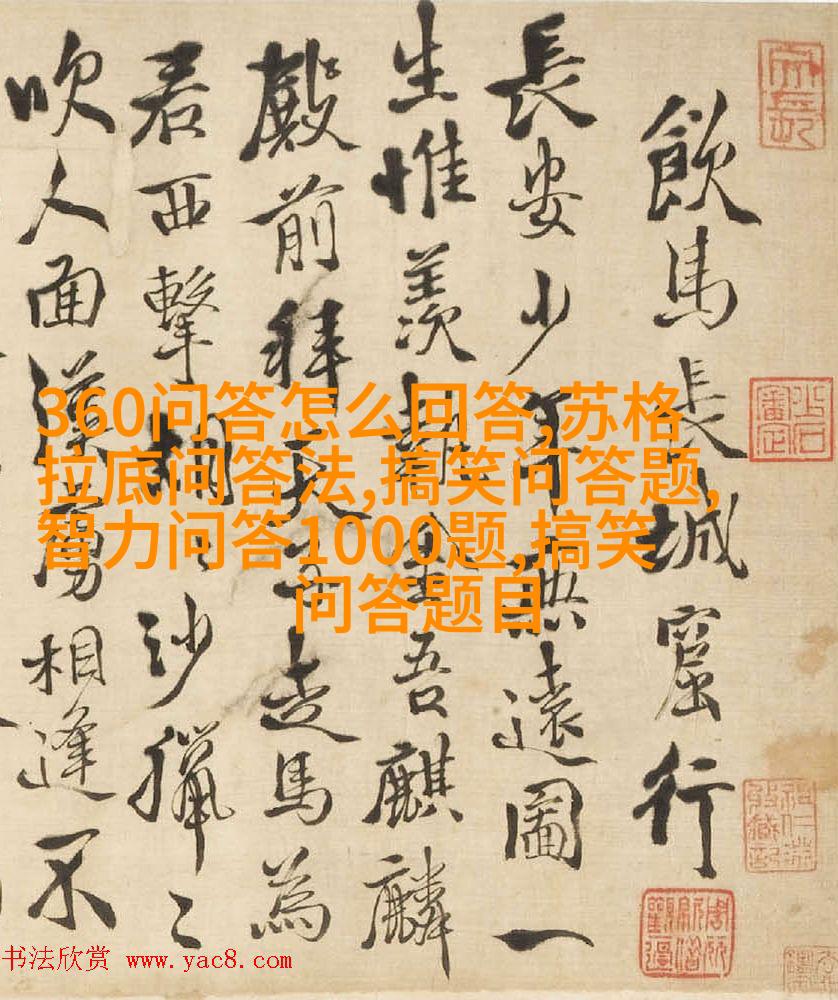 飲馬長城窟行
長安少年無遠圖一
生惟羨執金吾麒麟
殿前拜天子走馬為
君西擊胡〻沙獵〻
吹人面漢虜相逢不
360问答怎么回答,苏格
拉底问答法,搞笑问答题,
智力问答1000题,搞笑
问答题目
书法欣赏 www.yac8.com